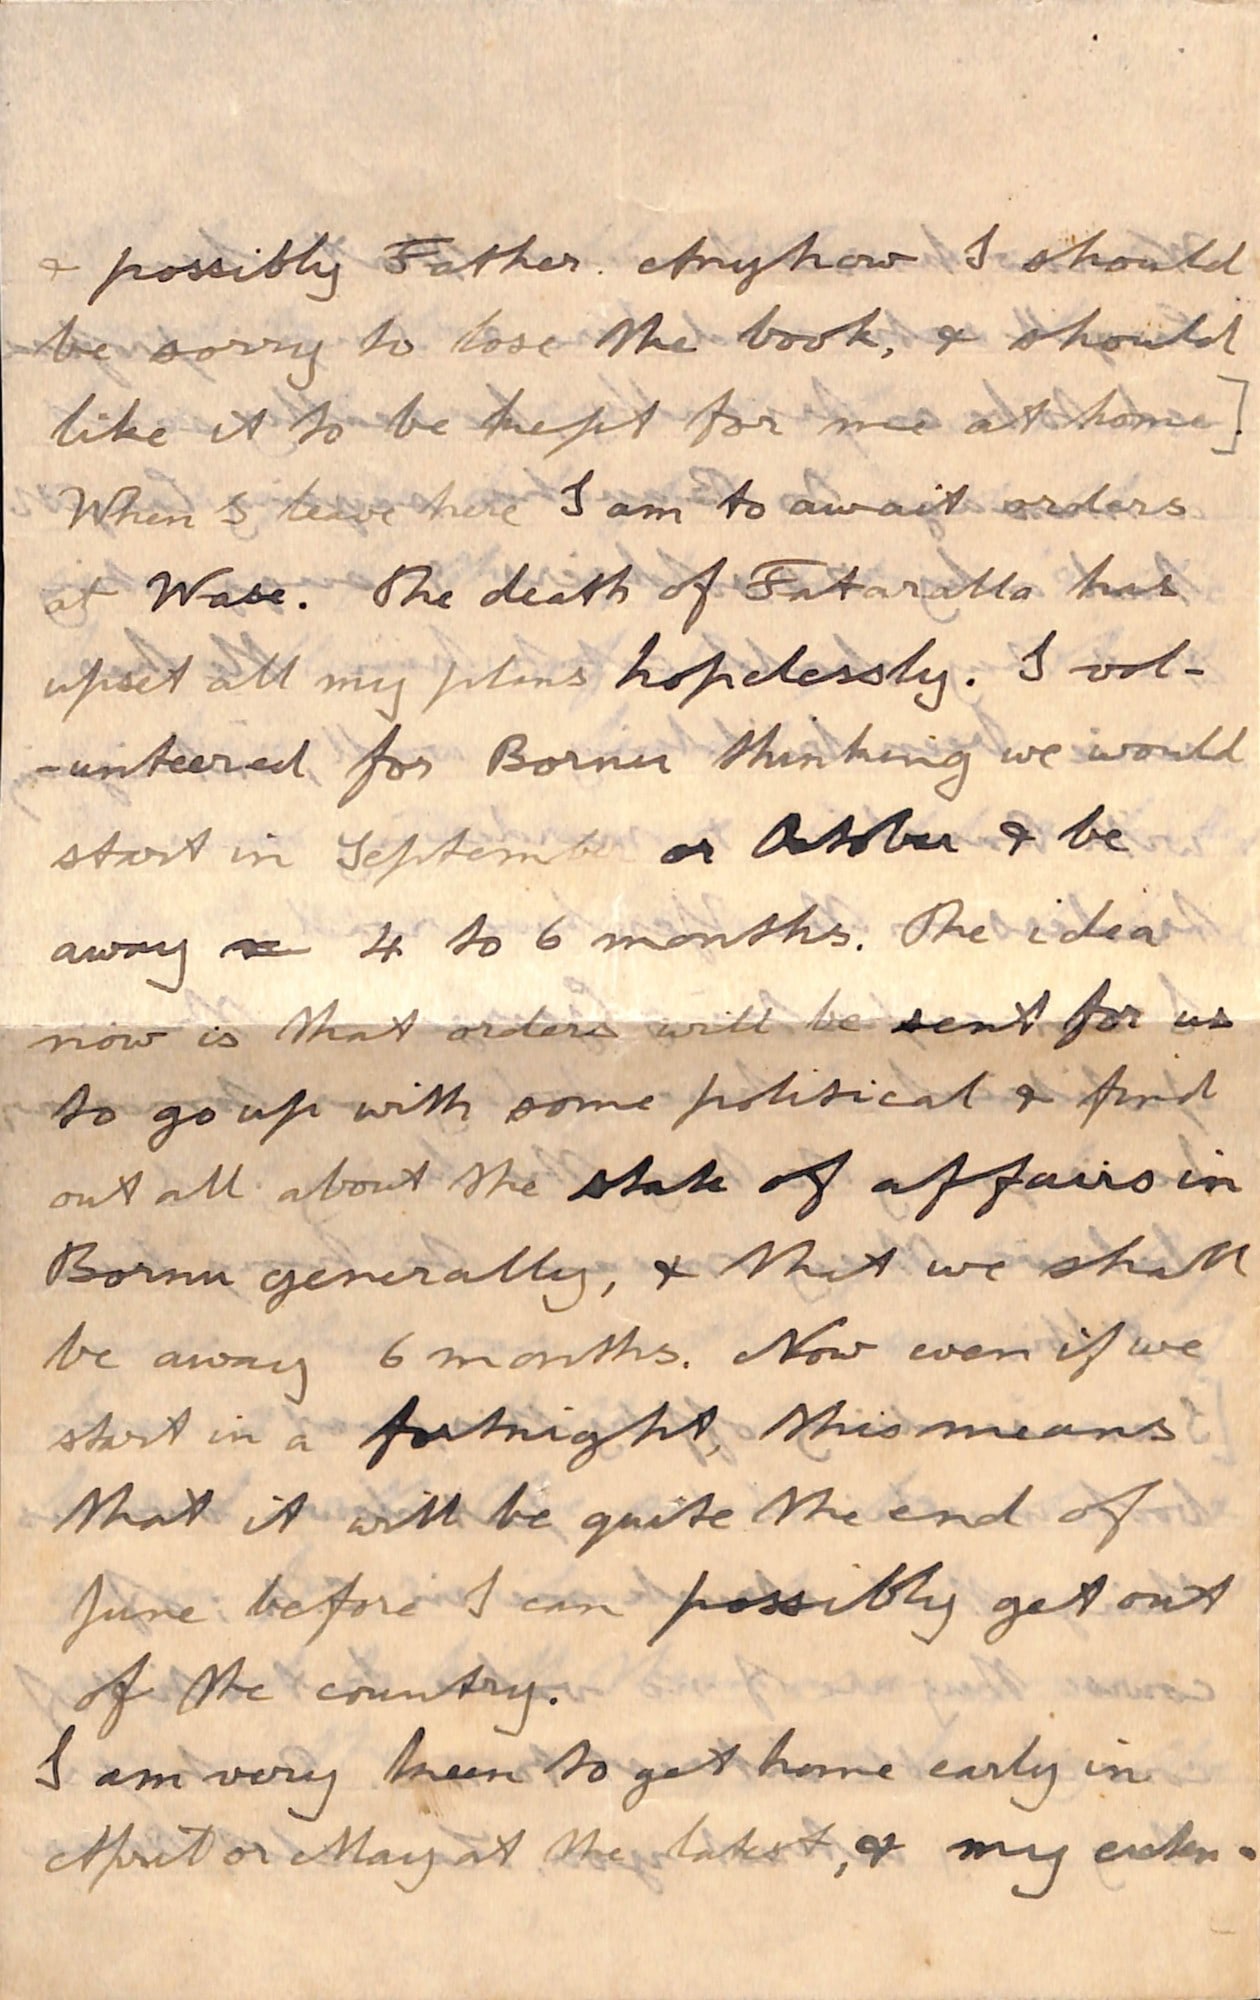 & possibly Father. Anyhow I should
be sorry to lose the book, & should
like it to be kept for me at home].
When I leave here I am to await orders
at Wase. The death of Fataralla has
upset all my plans hopelessly. I vol-
-unteered for Bornu thinking we would
start in September or October & be
away 4 to 6 months. The idea
now is that orders will be sent for us
to go up with some political & find
out all about the state of affairs in
Bornu generally, & that we shall
be away 6 months. Now even if we
start in a fortnight, this means
that it will be quite the end of
June before I can possibly get out
of the country.
I am very keen to get home early in
April or May at the latest, & my exten-